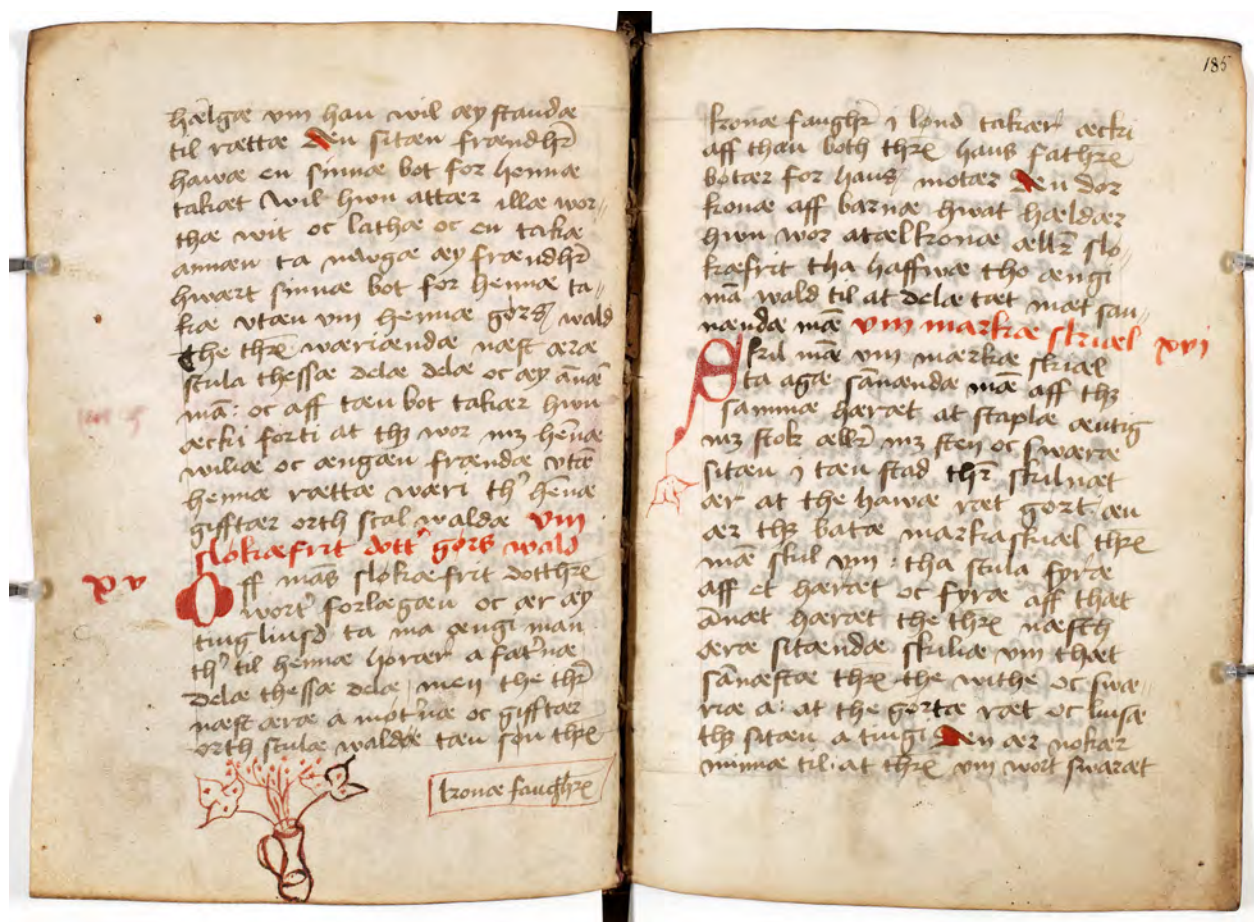 hælgæ vm han wil æy standæ
til rættæ Æn sitæn frændhr̄
hawæ en sinnæ bot for hennæ
takæt wil hwn attær illæ wor
thæ wit oc lathæ oc en takæ
annæn ta mwgæ æy frændhr̄
hwært sinnæ bot for hennæ ta
kæ vtæn vm hennæ gørs wald
the thr̄e wæriændæ næst æræ
scula thessæ delæ delæ oc æy ānæn
man: oc aff tæn bot takær hwn
æcki forti at thȝ wor mȝ hēnæ
wiliæ oc ængæn frændæ vtǣ
hennæ rættæ wæri thʼ hēnæ
gifftær orth scal waldæ vm
slokæfrit dottʼ gørs wald
xv
Off mās slokæ frit dotthr̄e
wortʼ forlægæn oc ær æy
tinglinsd ta ma ængi man
thʼ til hennæ hørær a fatʼnæ
delæ thessæ delæ men the thr̄
næst æræ a motʼnæ oc gifftær
orth sculæ waldæ tæn søn thr̄e
konæ faughr̄e
185
konæ faughr̄ i lønd takær æcki
aff than both thr̄e hans fathr̄e
bøtær for hans motær Æn dør
konæ aff barnæ hwat hældær
hwn wor atælkonæ ællr̄ slo
kæfrit tha haffwæ tho ængi
mā wald til at delæ tæt mæt san
nændæ mǣ vm markæ skiæl xvi
Skil mǣ vm mærkæ skiæl
ta agæ sānændæ mǣ aff thȝ
sammæ hæræt at staplæ æntig
mȝ stok ællr̄ mȝ sten oc swæræ
sitæn i tæn stad thr̄ skilnæt
ær at the hawæ ræt gort æn
ær thȝ batæ markaskiæl thr̄e
mǣ skil vm: tha scula fyræ
aff et hæræt oc fyræ aff thæt
ānæt hæræt the thr̄e næsth
æræ sitændæ skiliæ vm thæt
sānæstæ thr̄e the withe oc swæ
riæ a: at the gørtæ ræt oc liusæ
thȝ sitæn a tingi Æn ær nokær
minnæ til at thr̄e vm wort swaræt